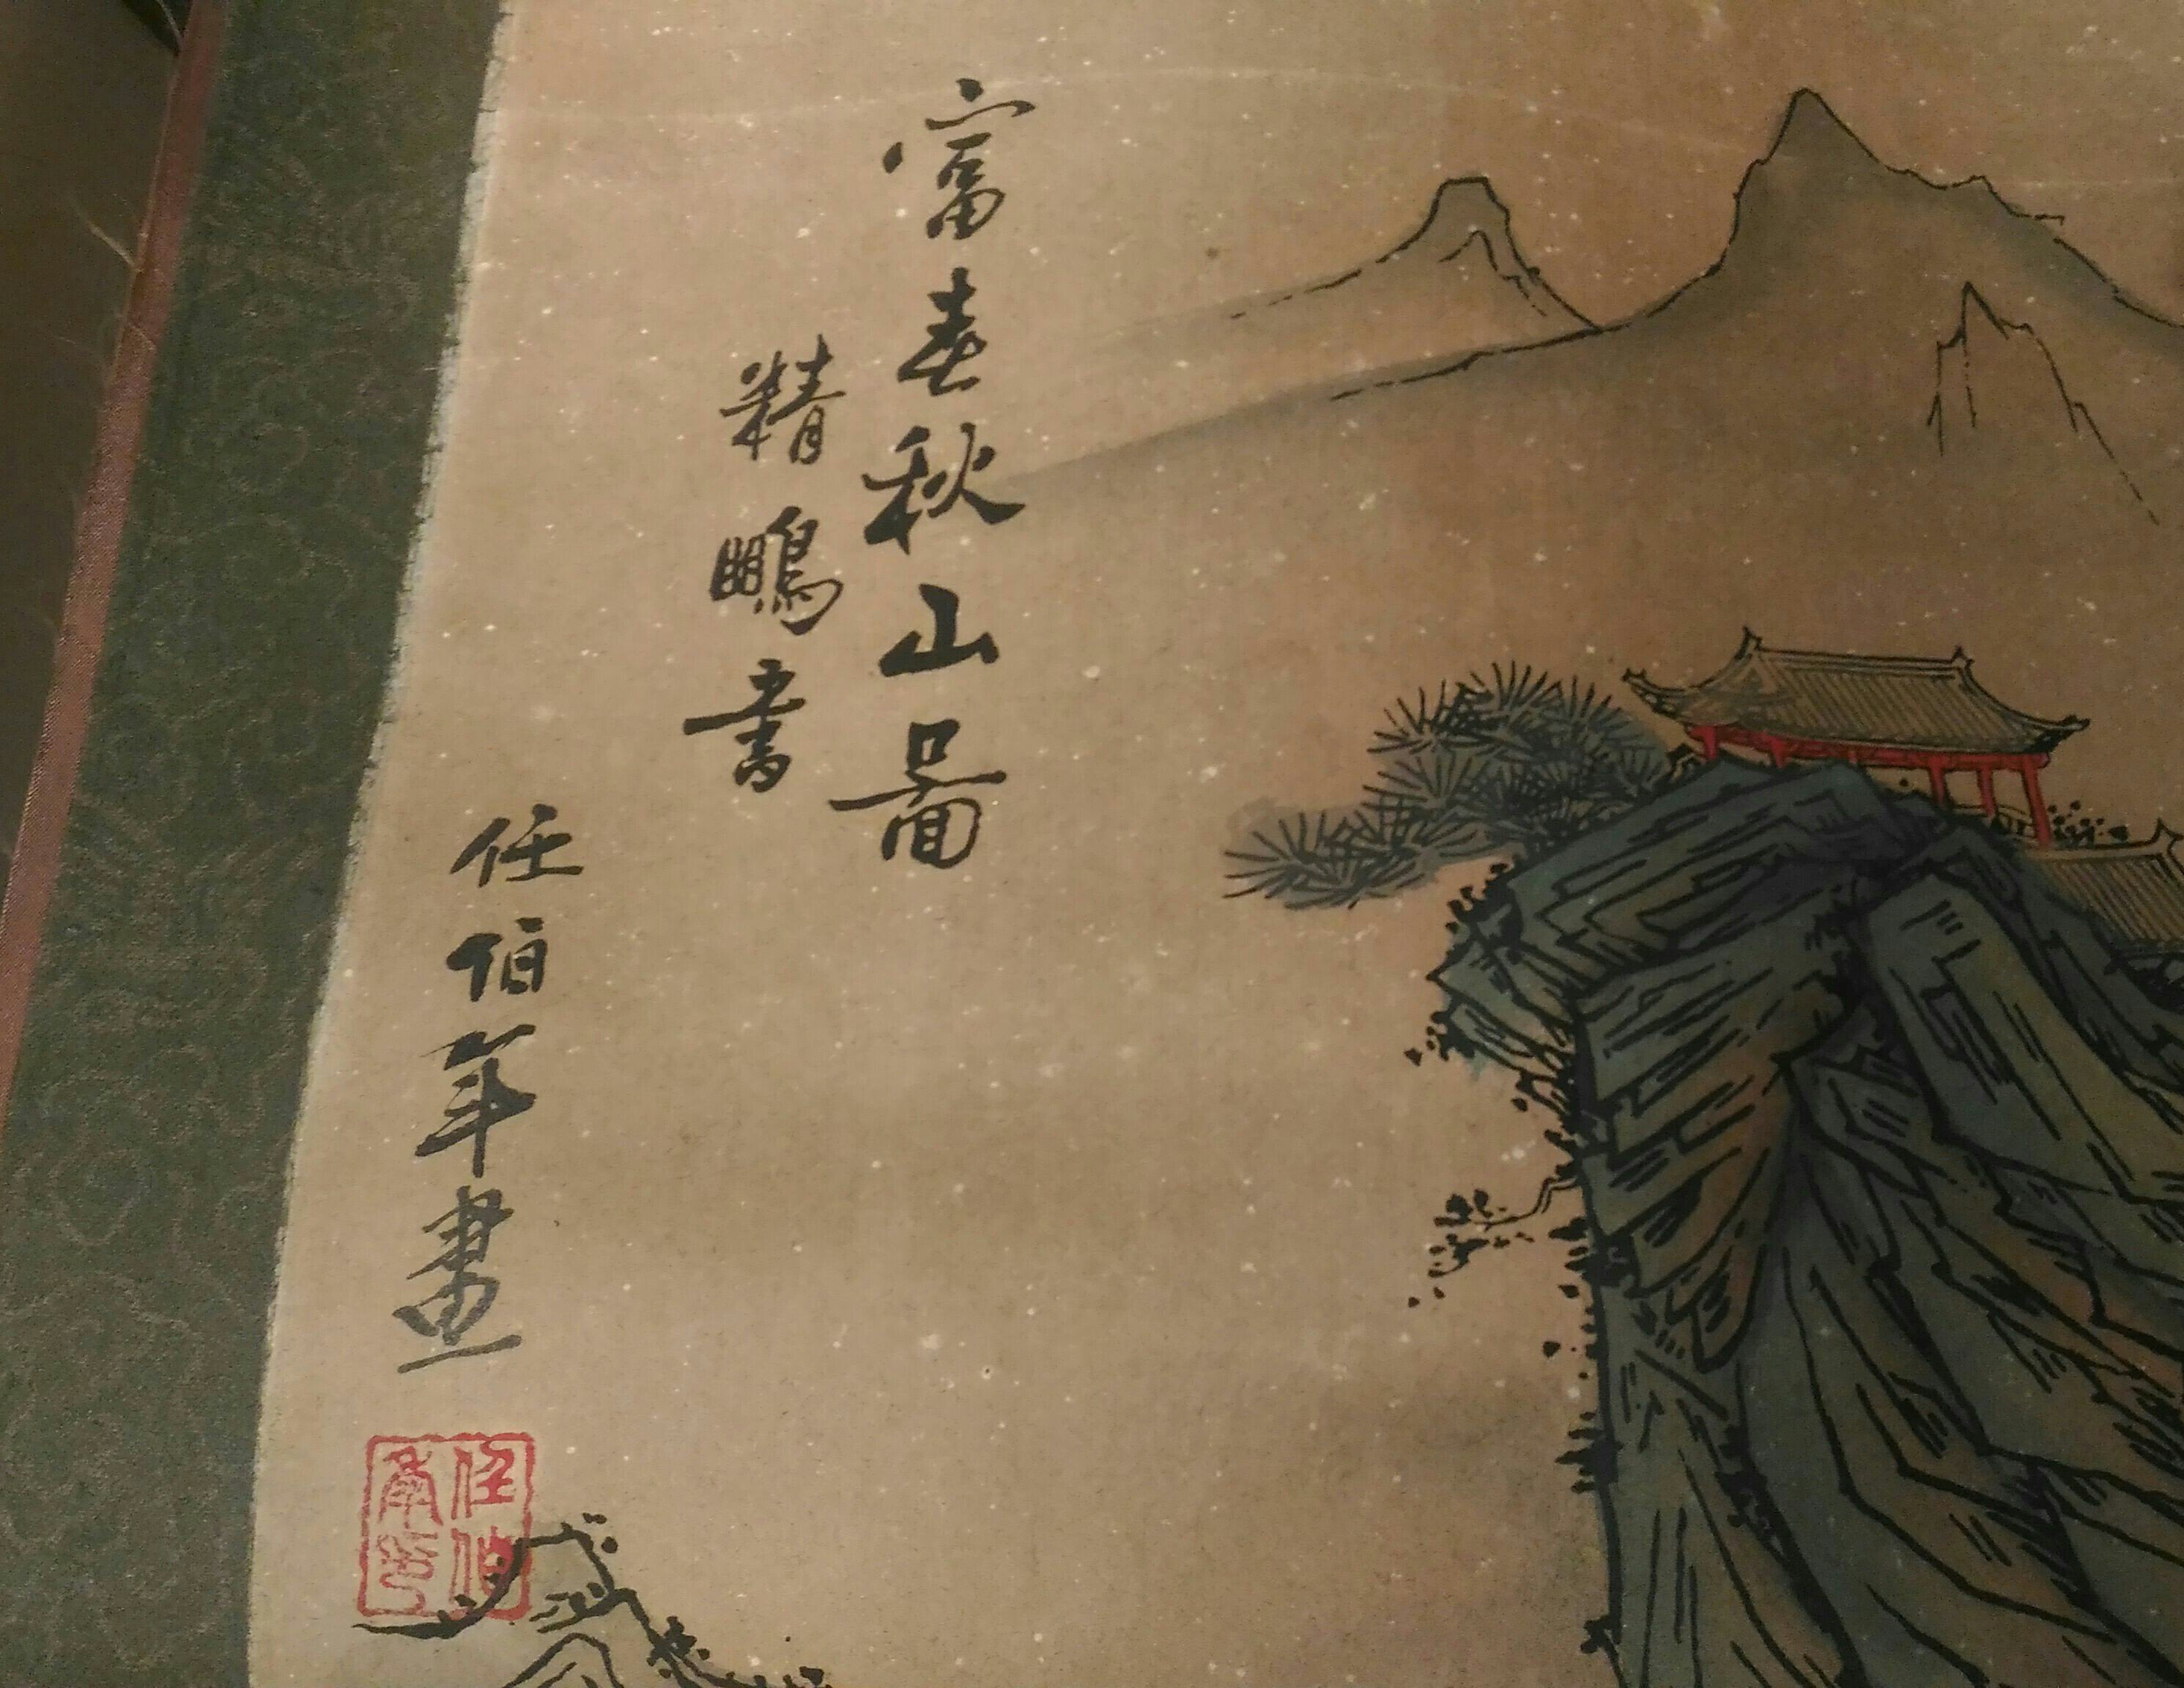 富春秋山圖
精鵬書
任伯年畫
任伯年印